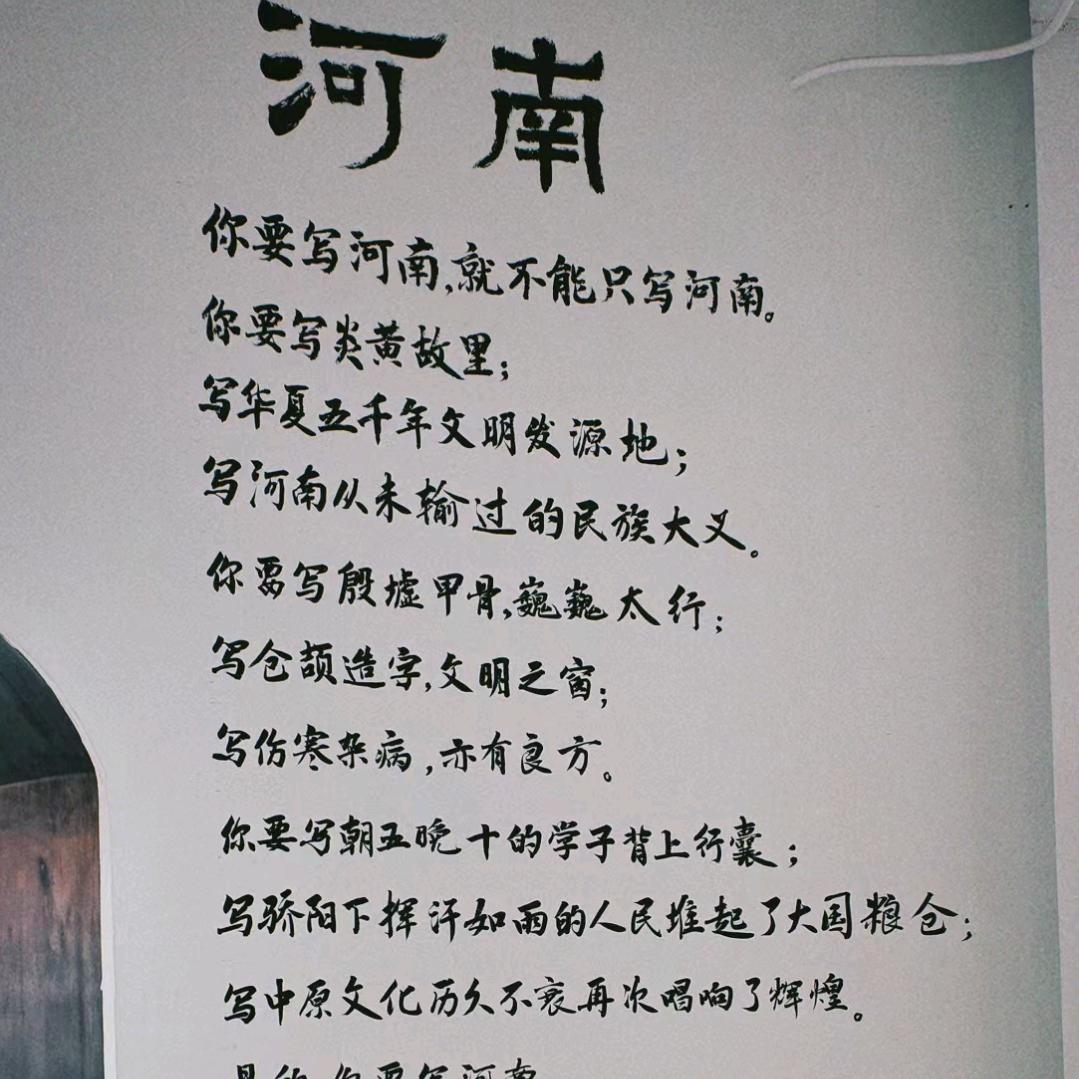 河南
你要写河南,就不能只写河南。
你要写炎黄故里;
写华夏五千年文明发源地;
写河南从未输过的民族大义。
你要写殷墟甲骨,巍巍太行;
写仓颉造字,文明之窗;
写伤寒杂病,亦有良方。
你要写朝五晚十的学子背上行囊;
写骄阳下挥汗如雨的人民堆起了大国粮仓;
写中原文化历久不衰再次唱响了辉煌。
是的,你要写河南